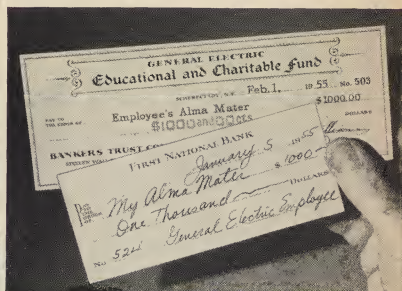 GENERAL ELECTRIC
Educational and Charitable Fund
SCHENECTADY, N.Y. Feb. 1, 1955 No. 503
PAY TO THE ORDER OF Employee's Alma Mater $1000.00
$1000 and 00 cts DOLLARS
BANKERS TRUST CO
FIRST NATIONAL BANK
January 5 1955
My Alma Mater $1000
One Thousand DOLLARS
No 524 General Electric Employee